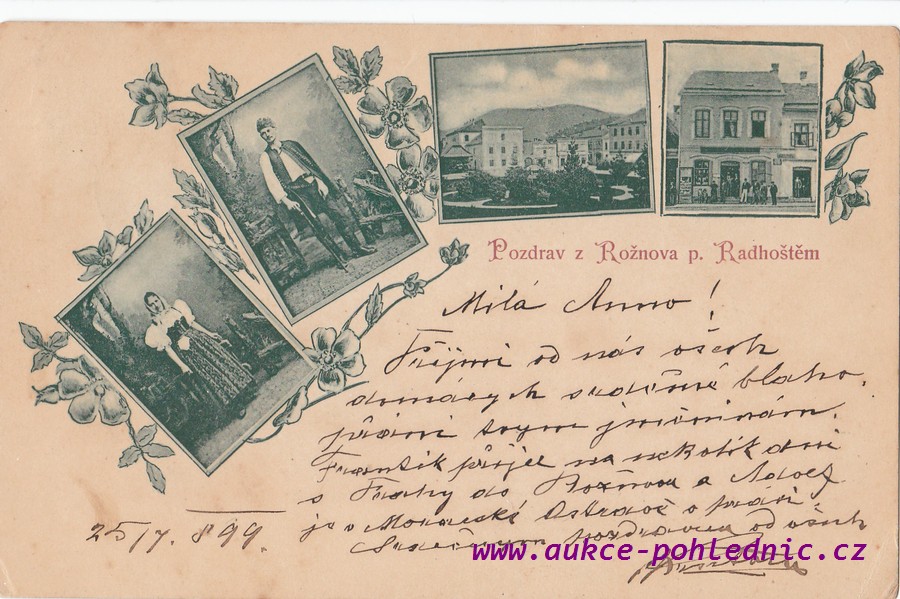 Pozdrav z Rožnova p. Radhoštěm
Milá Anno!
Přijmi od nás všech
domácých srdečné blaho-
přání tvym jmeninám.
Frantík přijel na nekolik dni
z Prahy do Rožnova a Adolf
je v Moravské Ostravě v práci.
Srdečným pozdravem od všech
25/7. 899.
www.aukce-pohlednic.cz